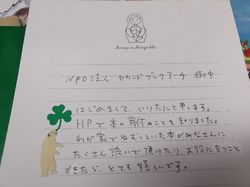 NPO法人 セカンドブックアーチ 御中
はじめまして、いりたにと申します。
HPで本の寄付のことを知りました。
わが家でねむっていた本がみなさんに
たくさん読んで頂けたり お役に立つこと
できたら、とても嬉しいです。